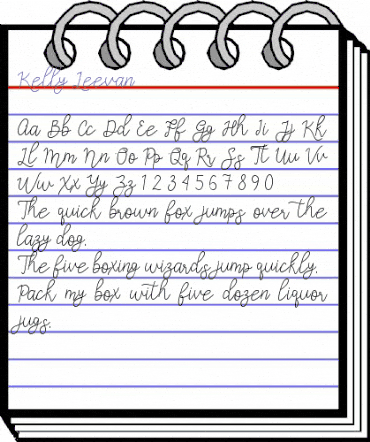 Kelly Jeevan
Aa Bb Cc Dd Ee Ff Gg Hh Ii Jj Kk
Ll Mm Nn Oo Pp Qq Rr Ss Tt Uu Vv
Ww Xx Yy Zz 1 2 3 4 5 6 7 8 9 0
The quick brown fox jumps over the
lazy dog.
The five boxing wizards jump quickly.
Pack my box with five dozen liquor
jugs.